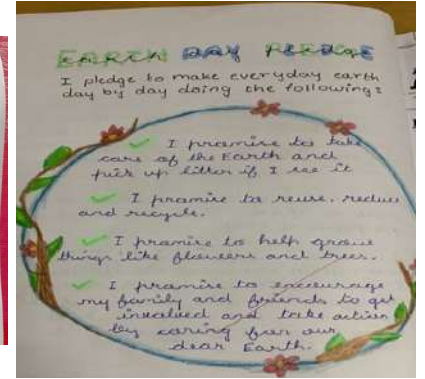 EARTH DAY PLEDGE
I pledge to make everyday earth
day by day doing the following:
I promise to take
care of the Earth and
pick up litter if I see it
I promise to reuse, reduce
and recycle.
I promise to help grow
things like flowers and trees.
I promise to encourage
my family and friends to get
involved and take action
by caring for our
dear Earth.